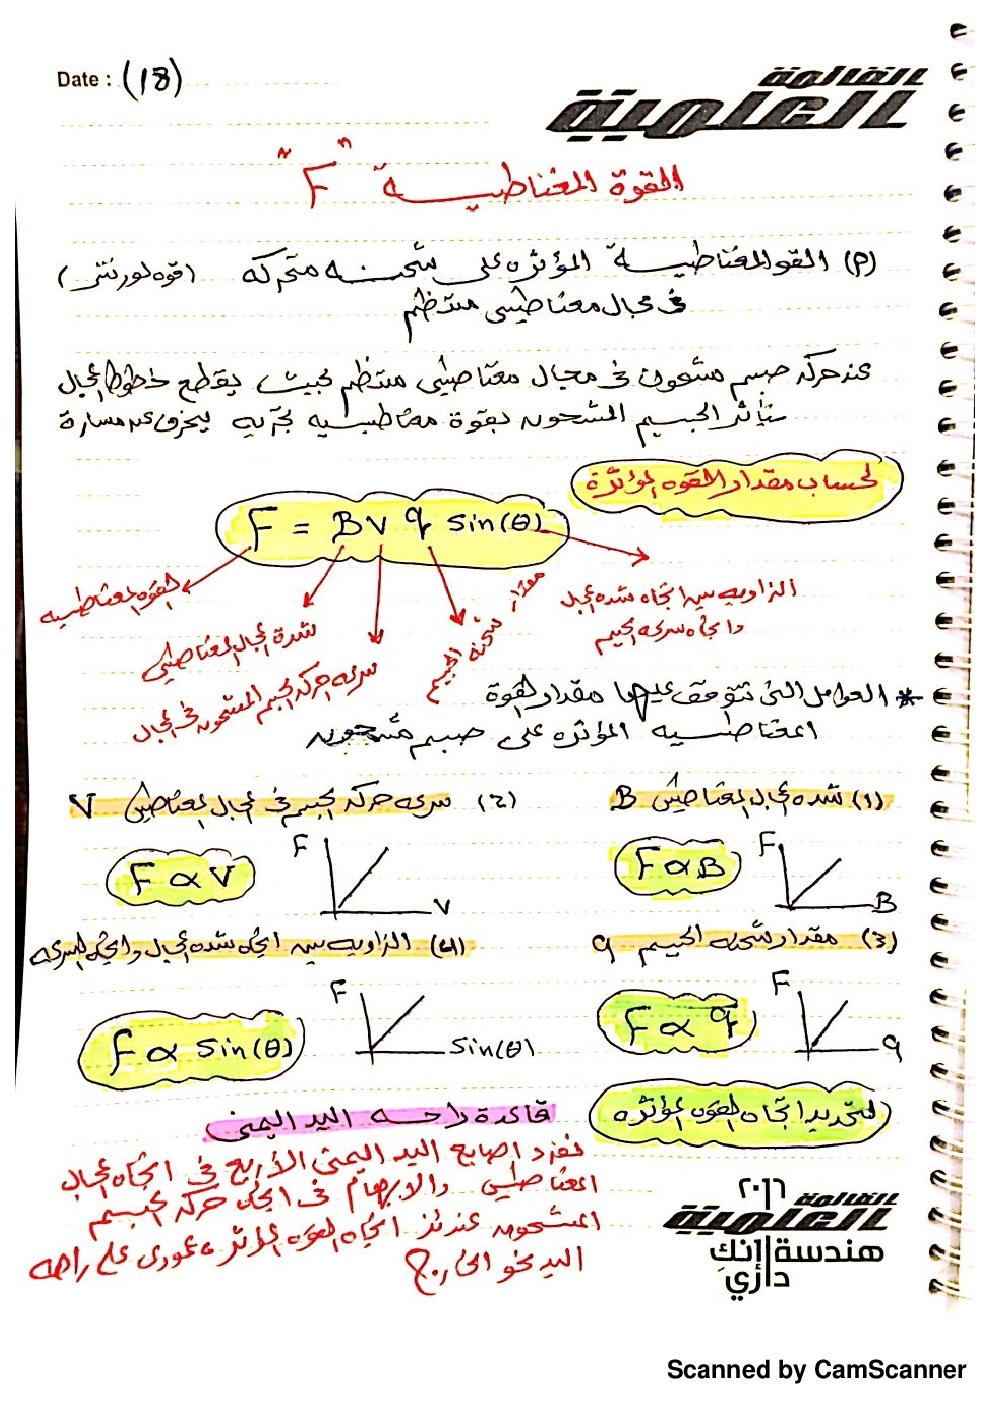 Date : (18)
القائمة
العلمية
القوة المغناطيسية "F"
(P) القوة المغناطيسية المؤثره على شحنه متحركه (قوه لورنتز)
في مجال مغناطيسي منتظم
عند حركه جسم مشحون في مجال مغناطيسي منتظم بحيث يقطع خطوط المجال
يتأثر الجسيم المشحون بقوة مغناطيسيه تجعله ينحرف عن مساره
لحساب مقدار القوه المؤثرة
F = B v q sin(θ)
القوه المغناطيسيه
شدة المجال المغناطيسي
سرعه حركه الجسم المشحون في المجال
مقدار شحنه الجسيم
الزاويه بين اتجاه شده المجال
واتجاه سرعه الجسيم
* العوامل التي تتوقف عليها مقدار القوة
المغناطيسيه المؤثره على جسم مشحون
(1) شده المجال المغناطيسي B
(2) سرعه حركه الجسم في المجال المغناطيسي V
F ∝ B
F
B
F ∝ V
F
V
(3) مقدار شحنه الجسيم q
(4) الزاويه بين اتجاه شده المجال واتجاه السرعه
F ∝ q
F
q
F ∝ sin(θ)
F
sin(θ)
لتحديد اتجاه القوه المؤثره
قاعدة راحه اليد اليمنى
نفرد اصابع اليد اليمنى الأربع في اتجاه المجال
المغناطيسي والابهام في اتجاه حركه الجسم
المشحون عندئذ اتجاه القوه المؤثره عمودي على راحه
اليد نحو الخارج
٢٠١٦
القائمة
العلمية
هندسة إنك
دا أزي
Scanned by CamScanner